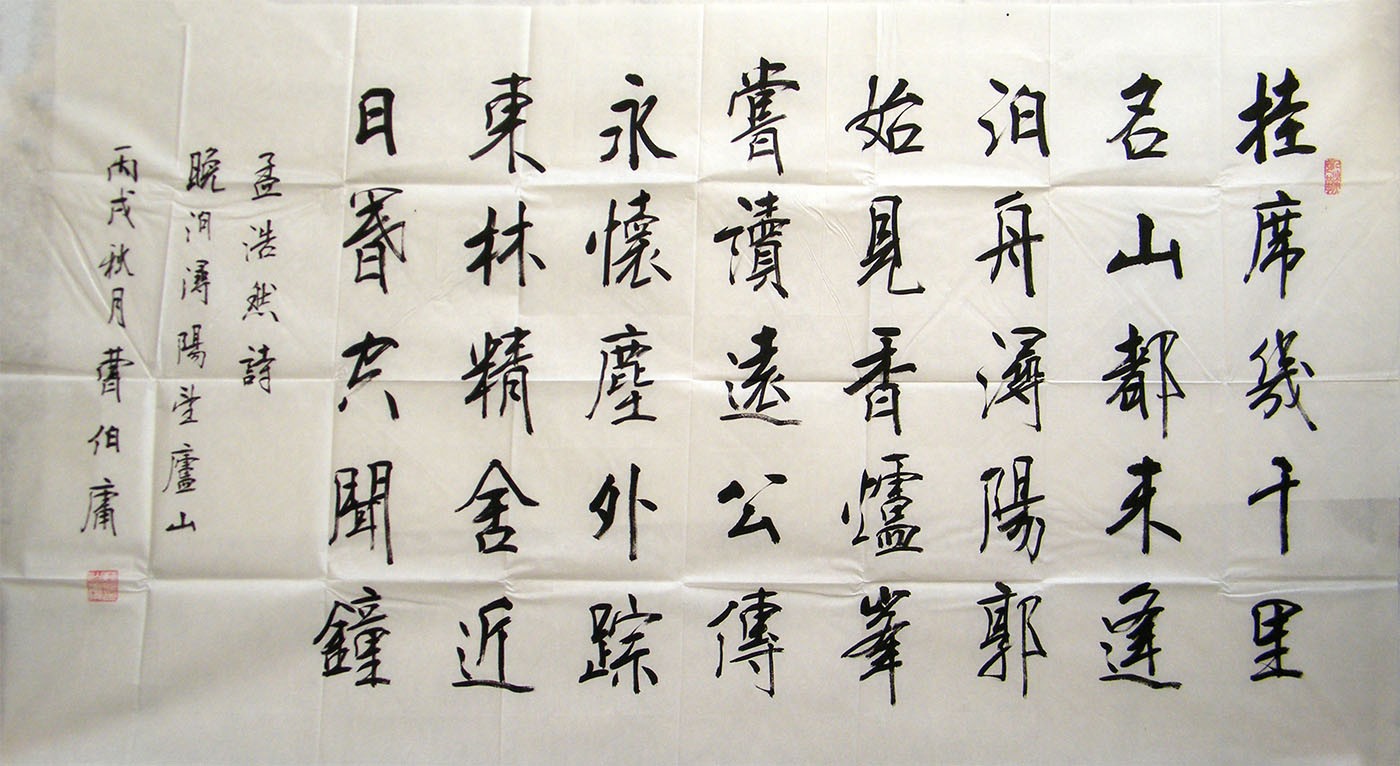 挂席幾千里
名山都未逢
泊舟潯陽郭
始見香爐峯
嘗讀遠公傳
永懷塵外踪
東林精舍近
日暮空聞鐘
孟浩然詩
晚泊潯陽望廬山
丙戌秋月曹伯庸